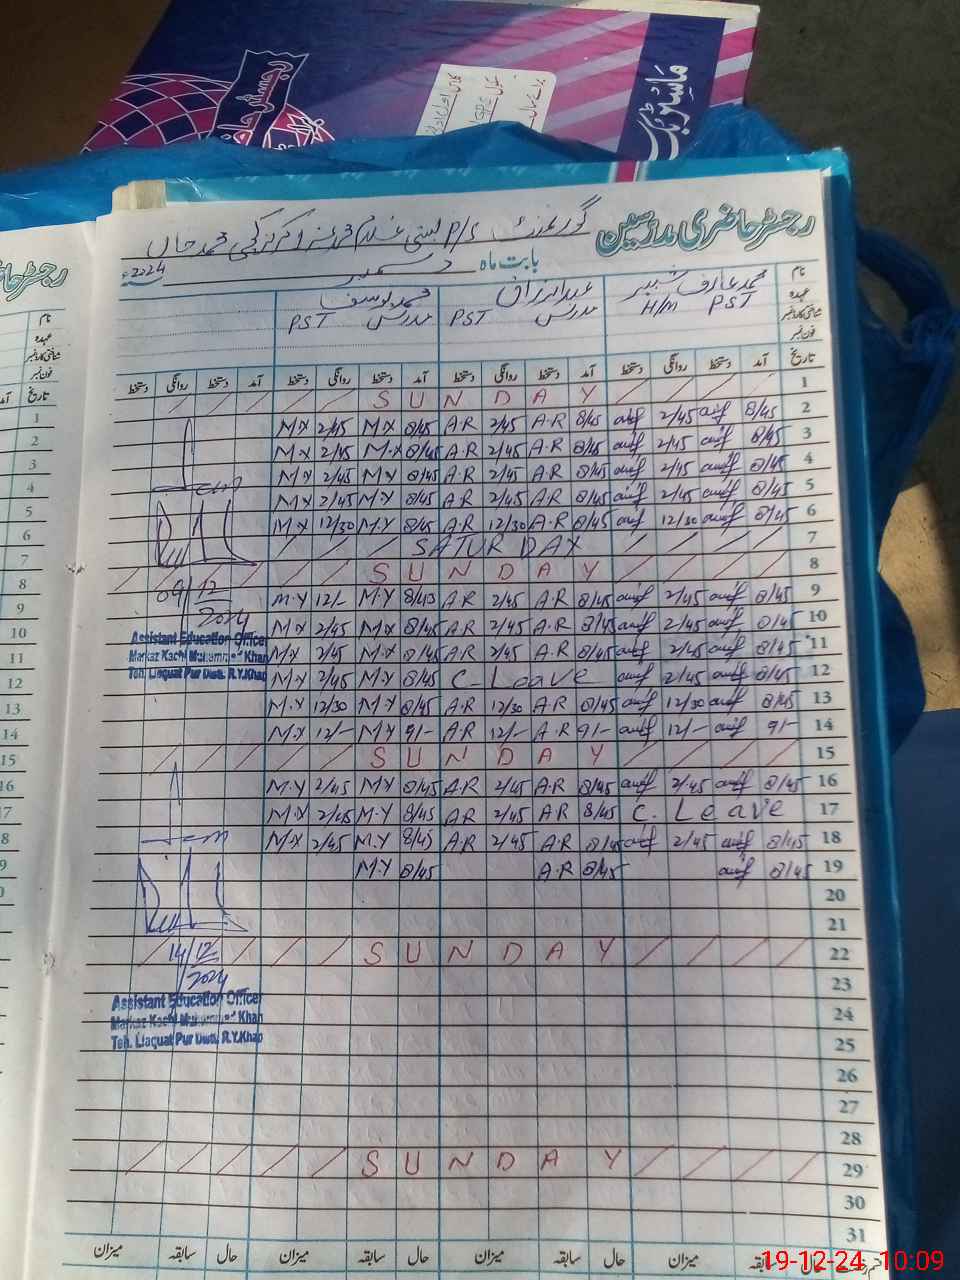 ماسٹر بک
رجسٹر حاضری مدرسین
گورنمنٹ P/S بستی غلام محمد مرکز کچی محمد خاں
بابت ماہ دسمبر 2024ء
نام محمد عارف شبیر عبدالرزاق محمد یوسف
عہدہ H/M PST مدرس PST مدرس PST
شناختی کارڈ نمبر
فون نمبر
تاریخ آمد دستخط روانگی دستخط آمد دستخط روانگی دستخط آمد دستخط روانگی دستخط آمد دستخط روانگی دستخط
1 S U N D A Y
2 M.Y 2/45 M.Y 8/45 A.R 2/45 A.R 8/45 2/45 8/45
3 M.Y 2/45 M.Y 8/45 A.R 2/45 A.R 8/45 2/45 8/45
4 M.Y 2/45 M.Y 8/45 A.R 2/45 A.R 8/45 2/45 8/45
5 M.Y 2/45 M.Y 8/45 A.R 2/45 A.R 8/45 2/45 8/45
6 M.Y 12/30 M.Y 8/45 A.R 12/30 A.R 8/45 12/30 8/45
7 SATURDAY
8 S U N D A Y
9 M.Y 12/- M.Y 8/45 A.R 2/45 A.R 8/45 2/45 8/45
10 M.Y 2/45 M.Y 8/45 A.R 2/45 A.R 8/45 2/45 8/45
11 M.Y 2/45 M.Y 8/45 A.R 2/45 A.R 8/45 2/45 8/45
12 M.Y 2/45 M.Y 8/45 C-Leave 2/45 8/45
13 M.Y 12/30 M.Y 8/45 A.R 12/30 A.R 8/45 12/30 8/45
14 M.Y 12/- M.Y 9/- A.R 12/- A.R 9/- 12/- 9/-
15 S U N D A Y
16 M.Y 2/45 M.Y 8/45 A.R 2/45 A.R 8/45 2/45 8/45
17 M.Y 2/45 M.Y 8/45 A.R 2/45 A.R 8/45 C. Leave
18 M.Y 2/45 M.Y 8/45 A.R 2/45 A.R 8/45 2/45 8/45
19 M.Y 8/45 A.R 8/45 8/45
20
21
22 S U N D A Y
23
24
25
26
27
28
29 S U N D A Y
30
31
حال سابقہ میزان حال سابقہ میزان حال سابقہ میزان حال سابقہ میزان
09/12
2024
Assistant Education Officer
Markaz Kachi Muhammed Khan
Teh. Liaquat Pur Distt. R.Y.Khan
14/12
2024
Assistant Education Officer
Markaz Kachi Muhammed Khan
Teh. Liaquat Pur Distt. R.Y.Khan
رجسٹر حا
نام
عہدہ
شناختی کارڈ نمبر
فون نمبر
تاریخ
1
2
3
4
5
6
7
8
9
10
11
12
13
14
15
16
17
19-12-24 10:09